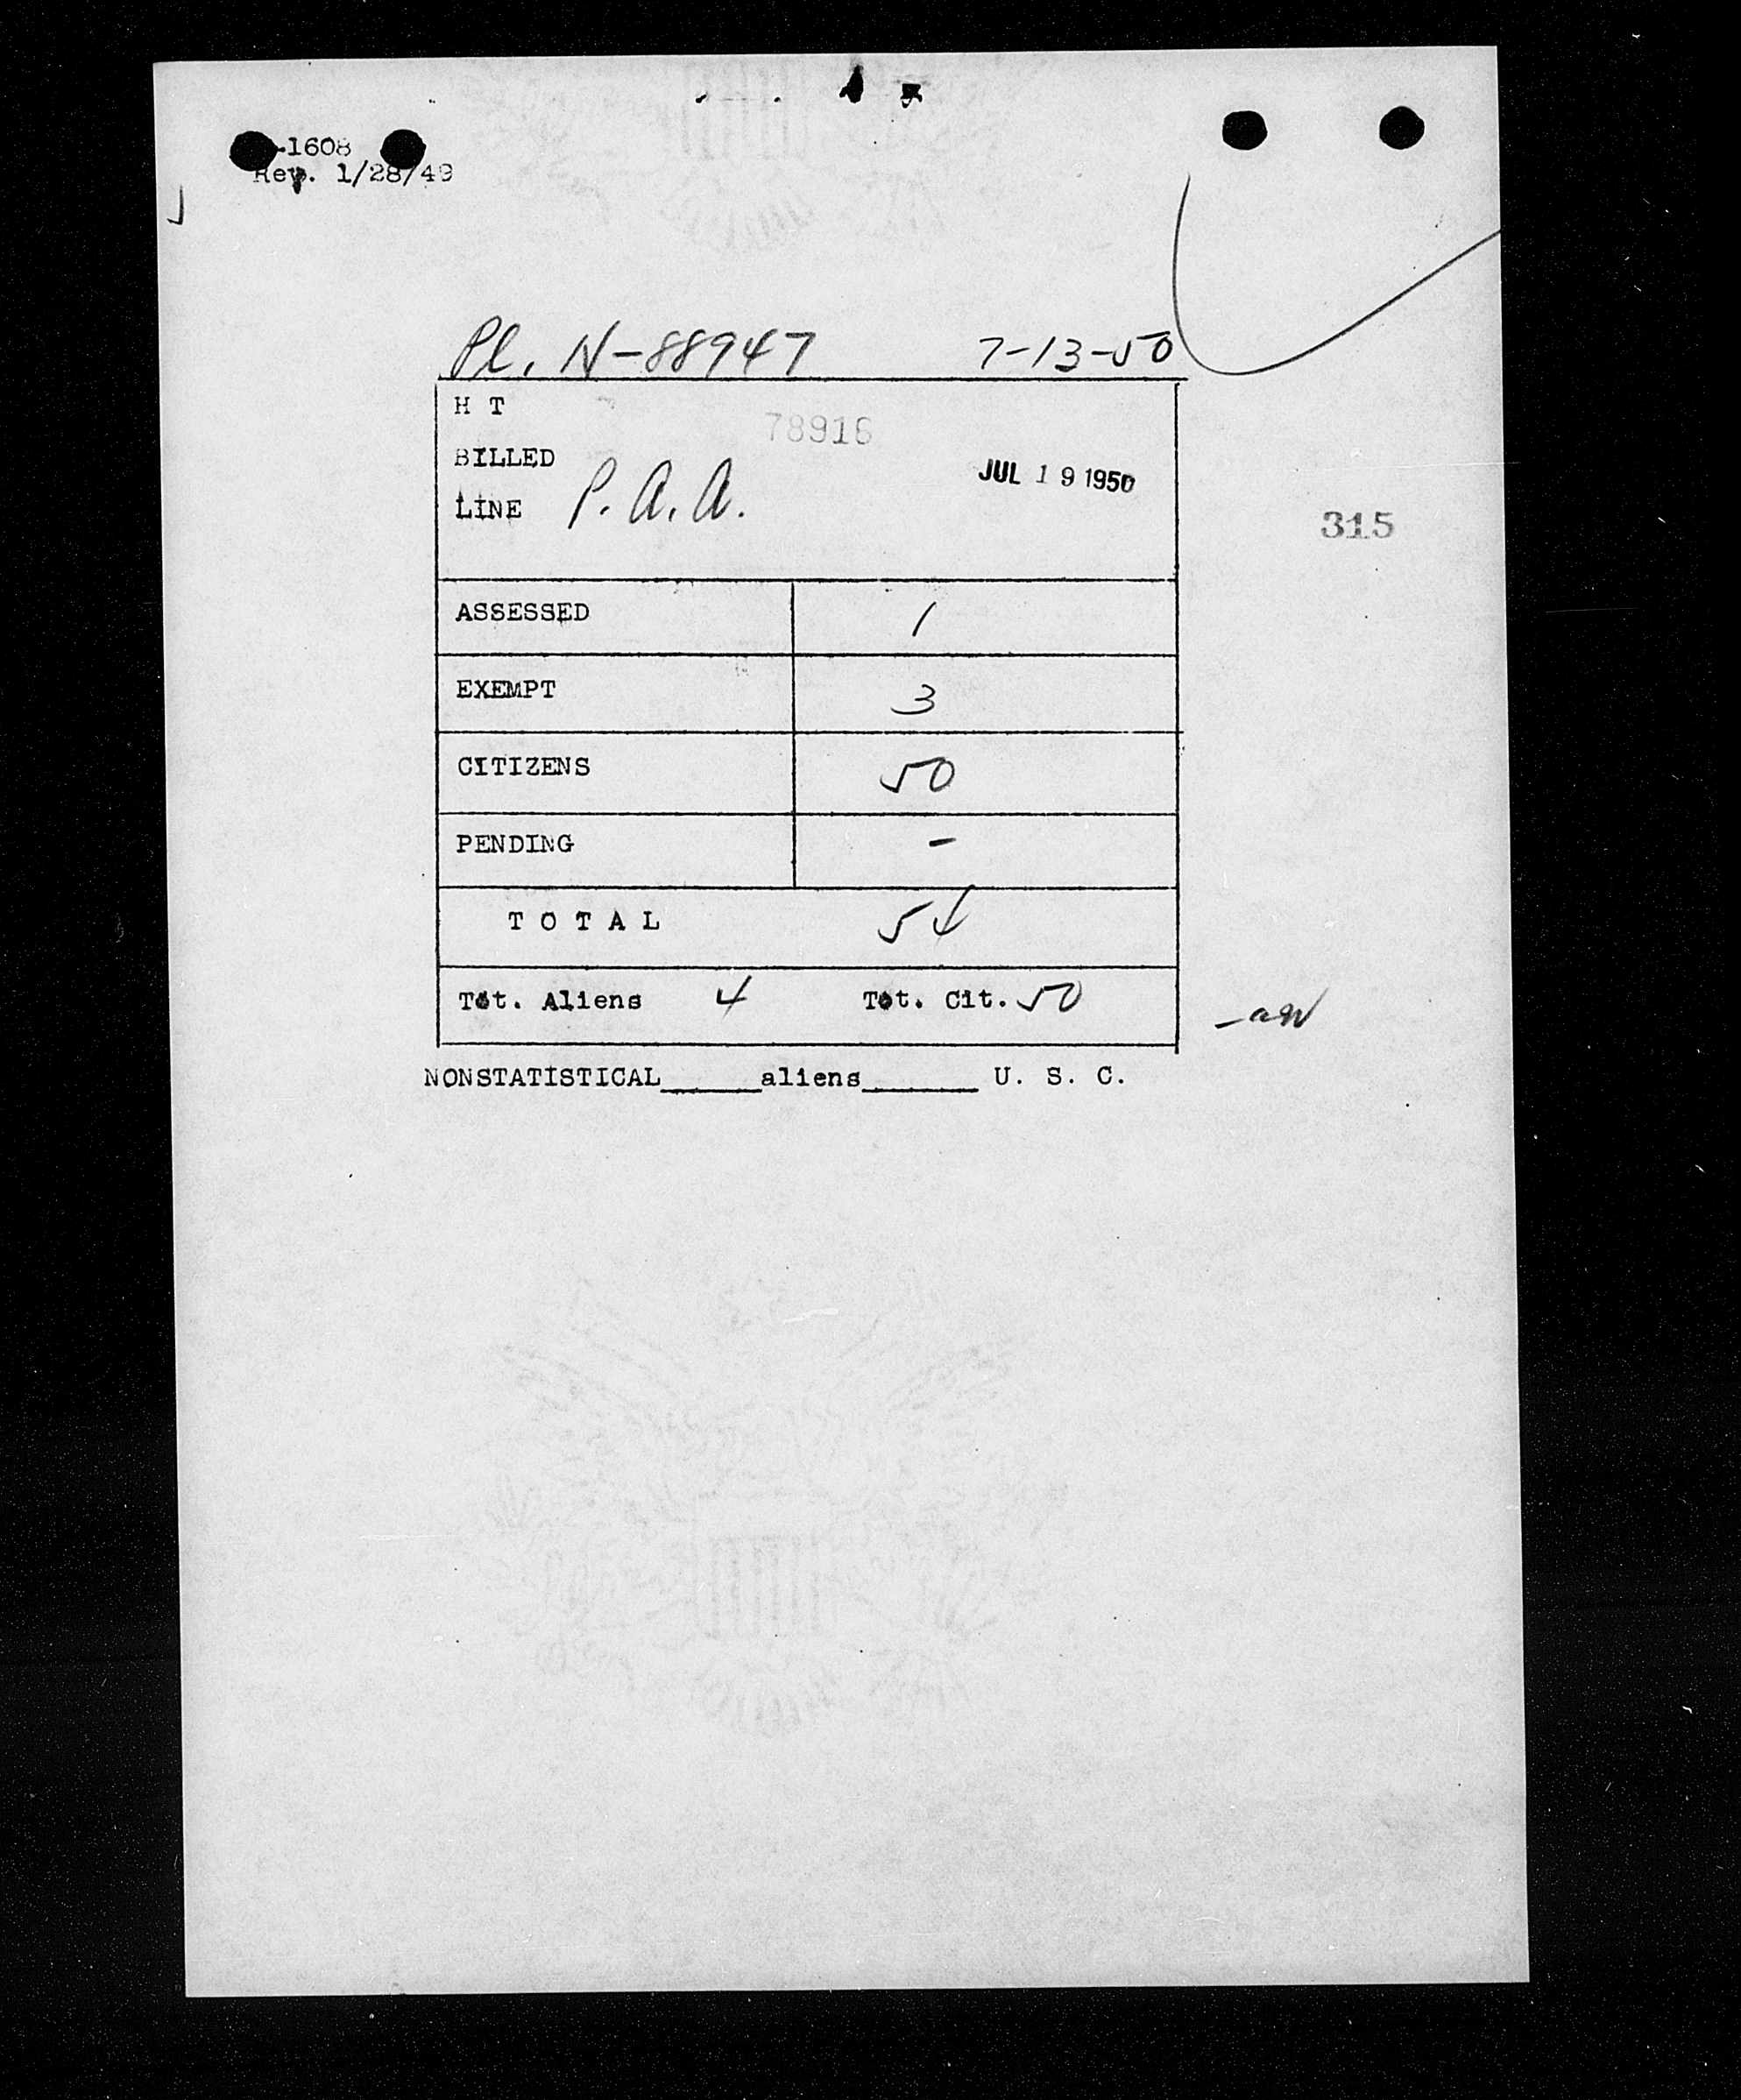 -1608
Rev. 1/28/49
Pl. N-88947 7-13-50
H T
78916
BILLED
JUL 19 1950
LINE P.A.A.
315
ASSESSED 1
EXEMPT 3
CITIZENS 50
PENDING -
T O T A L 54
Tot. Aliens 4 Tot. Cit. 50
NONSTATISTICAL_____aliens______ U. S. C.